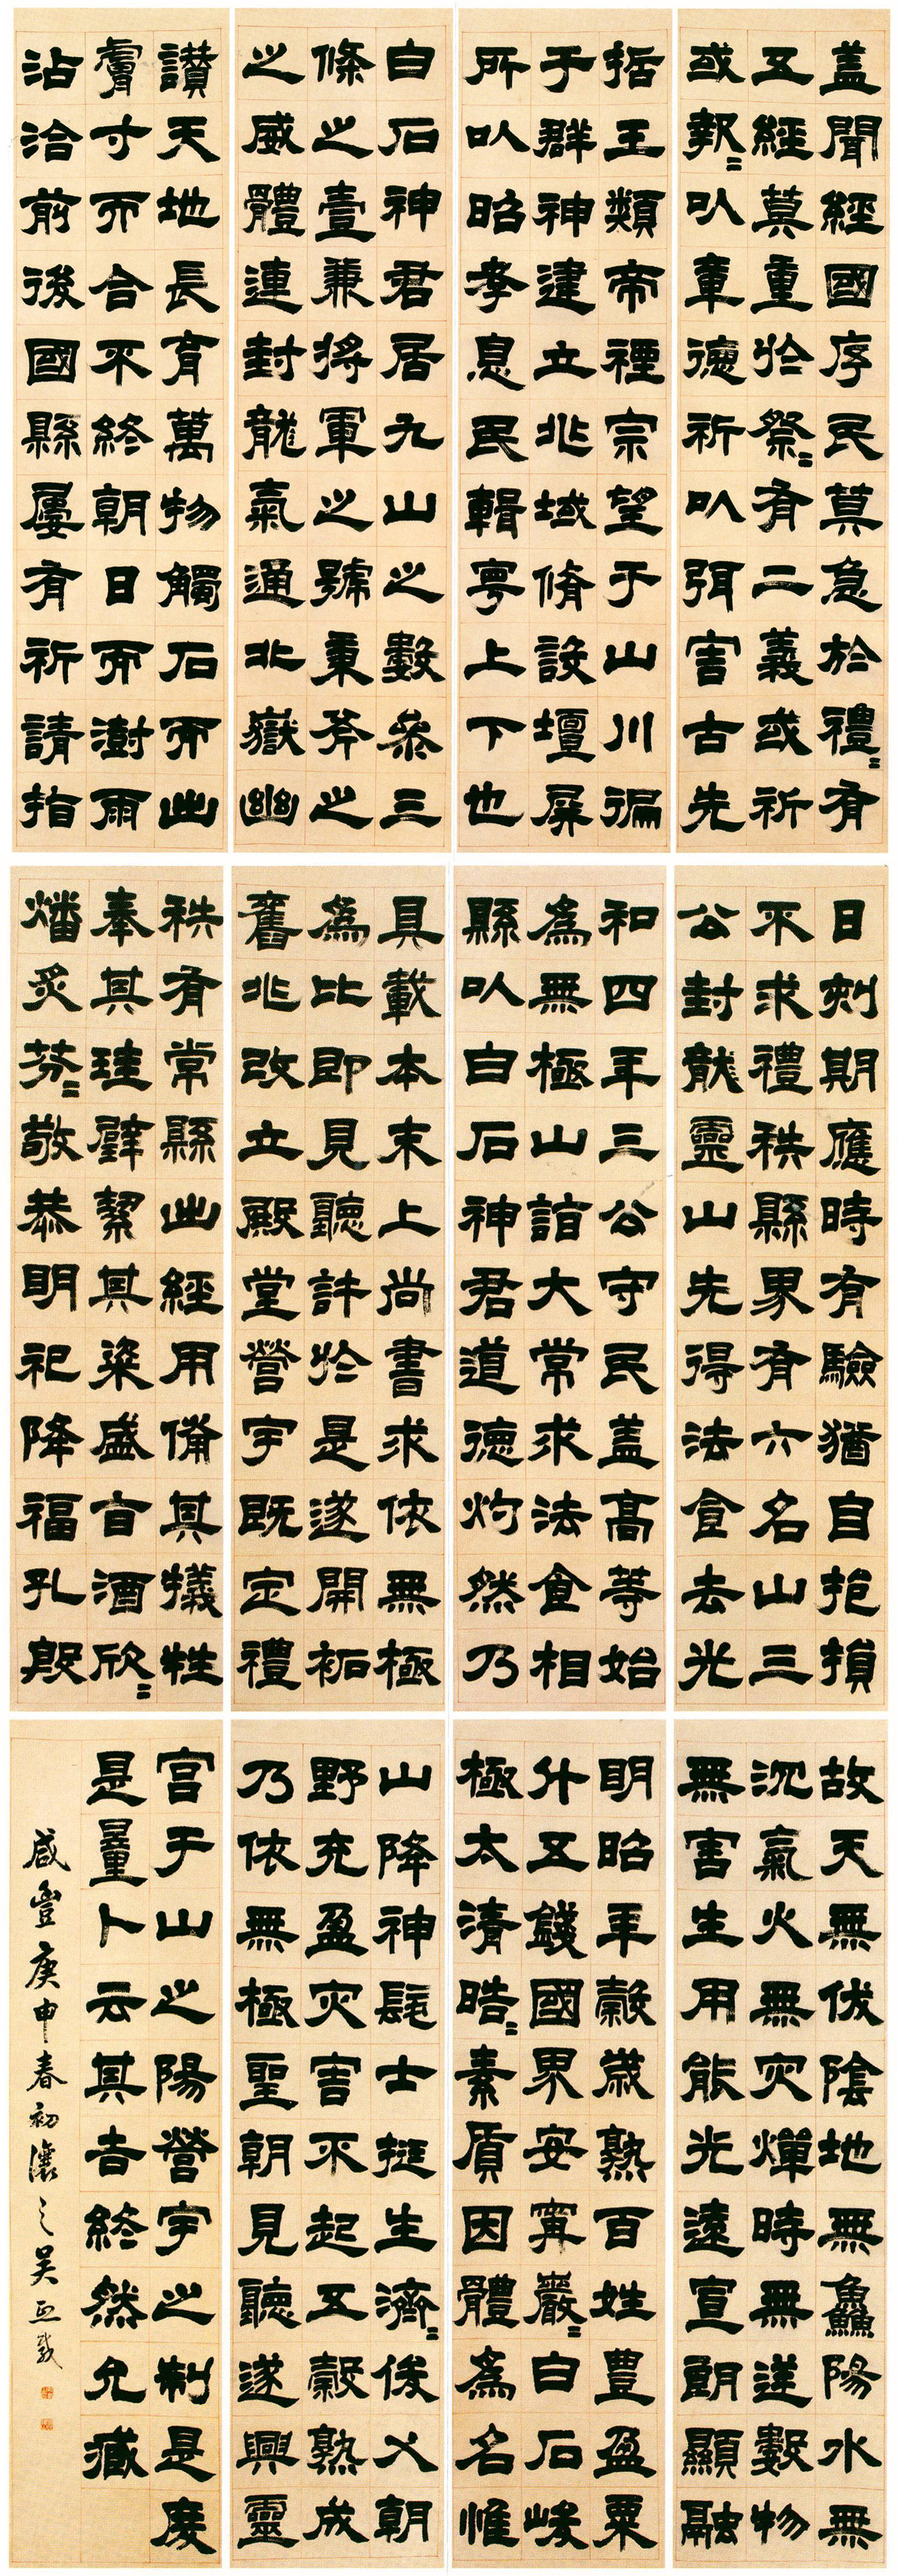 盖聞經國序民莫急於禮〻有
五經莫重於祭〻有二義或祈
或報〻以章德祈以弭害古先
哲王類帝禋宗望于山川徧
于群神建立兆域脩設壇屏
所以昭孝息民輯寧上下也
白石神君居九山之數參三
條之壹兼將軍之號秉斧之
之威體連封龍氣通北嶽幽
讃天地長育萬物觸石而出
膚寸而合不終朝日而澍雨
沾洽前後國縣屢有祈請指
日刻期應時有驗猶自挹損
不求禮秩縣界有六名山三
公封龍靈山先得法食去光
和四年三公守民盖高等始
為無極山詣大常求法食相
縣以白石神君道德灼然乃
具載本末上尚書求依無極
為比即見聽許於是遂開袥
舊兆改立殿堂營宇既定禮
秩有常縣出經用備其犧牲
奉其珪璧絜其粢盛旨酒欣〻
燔炙芬〻敬恭明祀降福孔殷
故天無伏陰地無鱻陽水無
沉氣火無灾燀時無逆數物
無害生用能光遠宣朗顯融
明昭年穀歲熟百姓豊盈粟
升五錢國界安寗巖〻白石峻
極太清皓〻素質因體為名惟
山降神髦士挺生濟〻俊乂朝
野充盈灾害不起五穀熟成
乃依無極聖朝見聽遂興靈
宫于山之陽營宇之制是度
是量卜云其吉終然允臧
咸豐庚申春初瀼之吴熙載